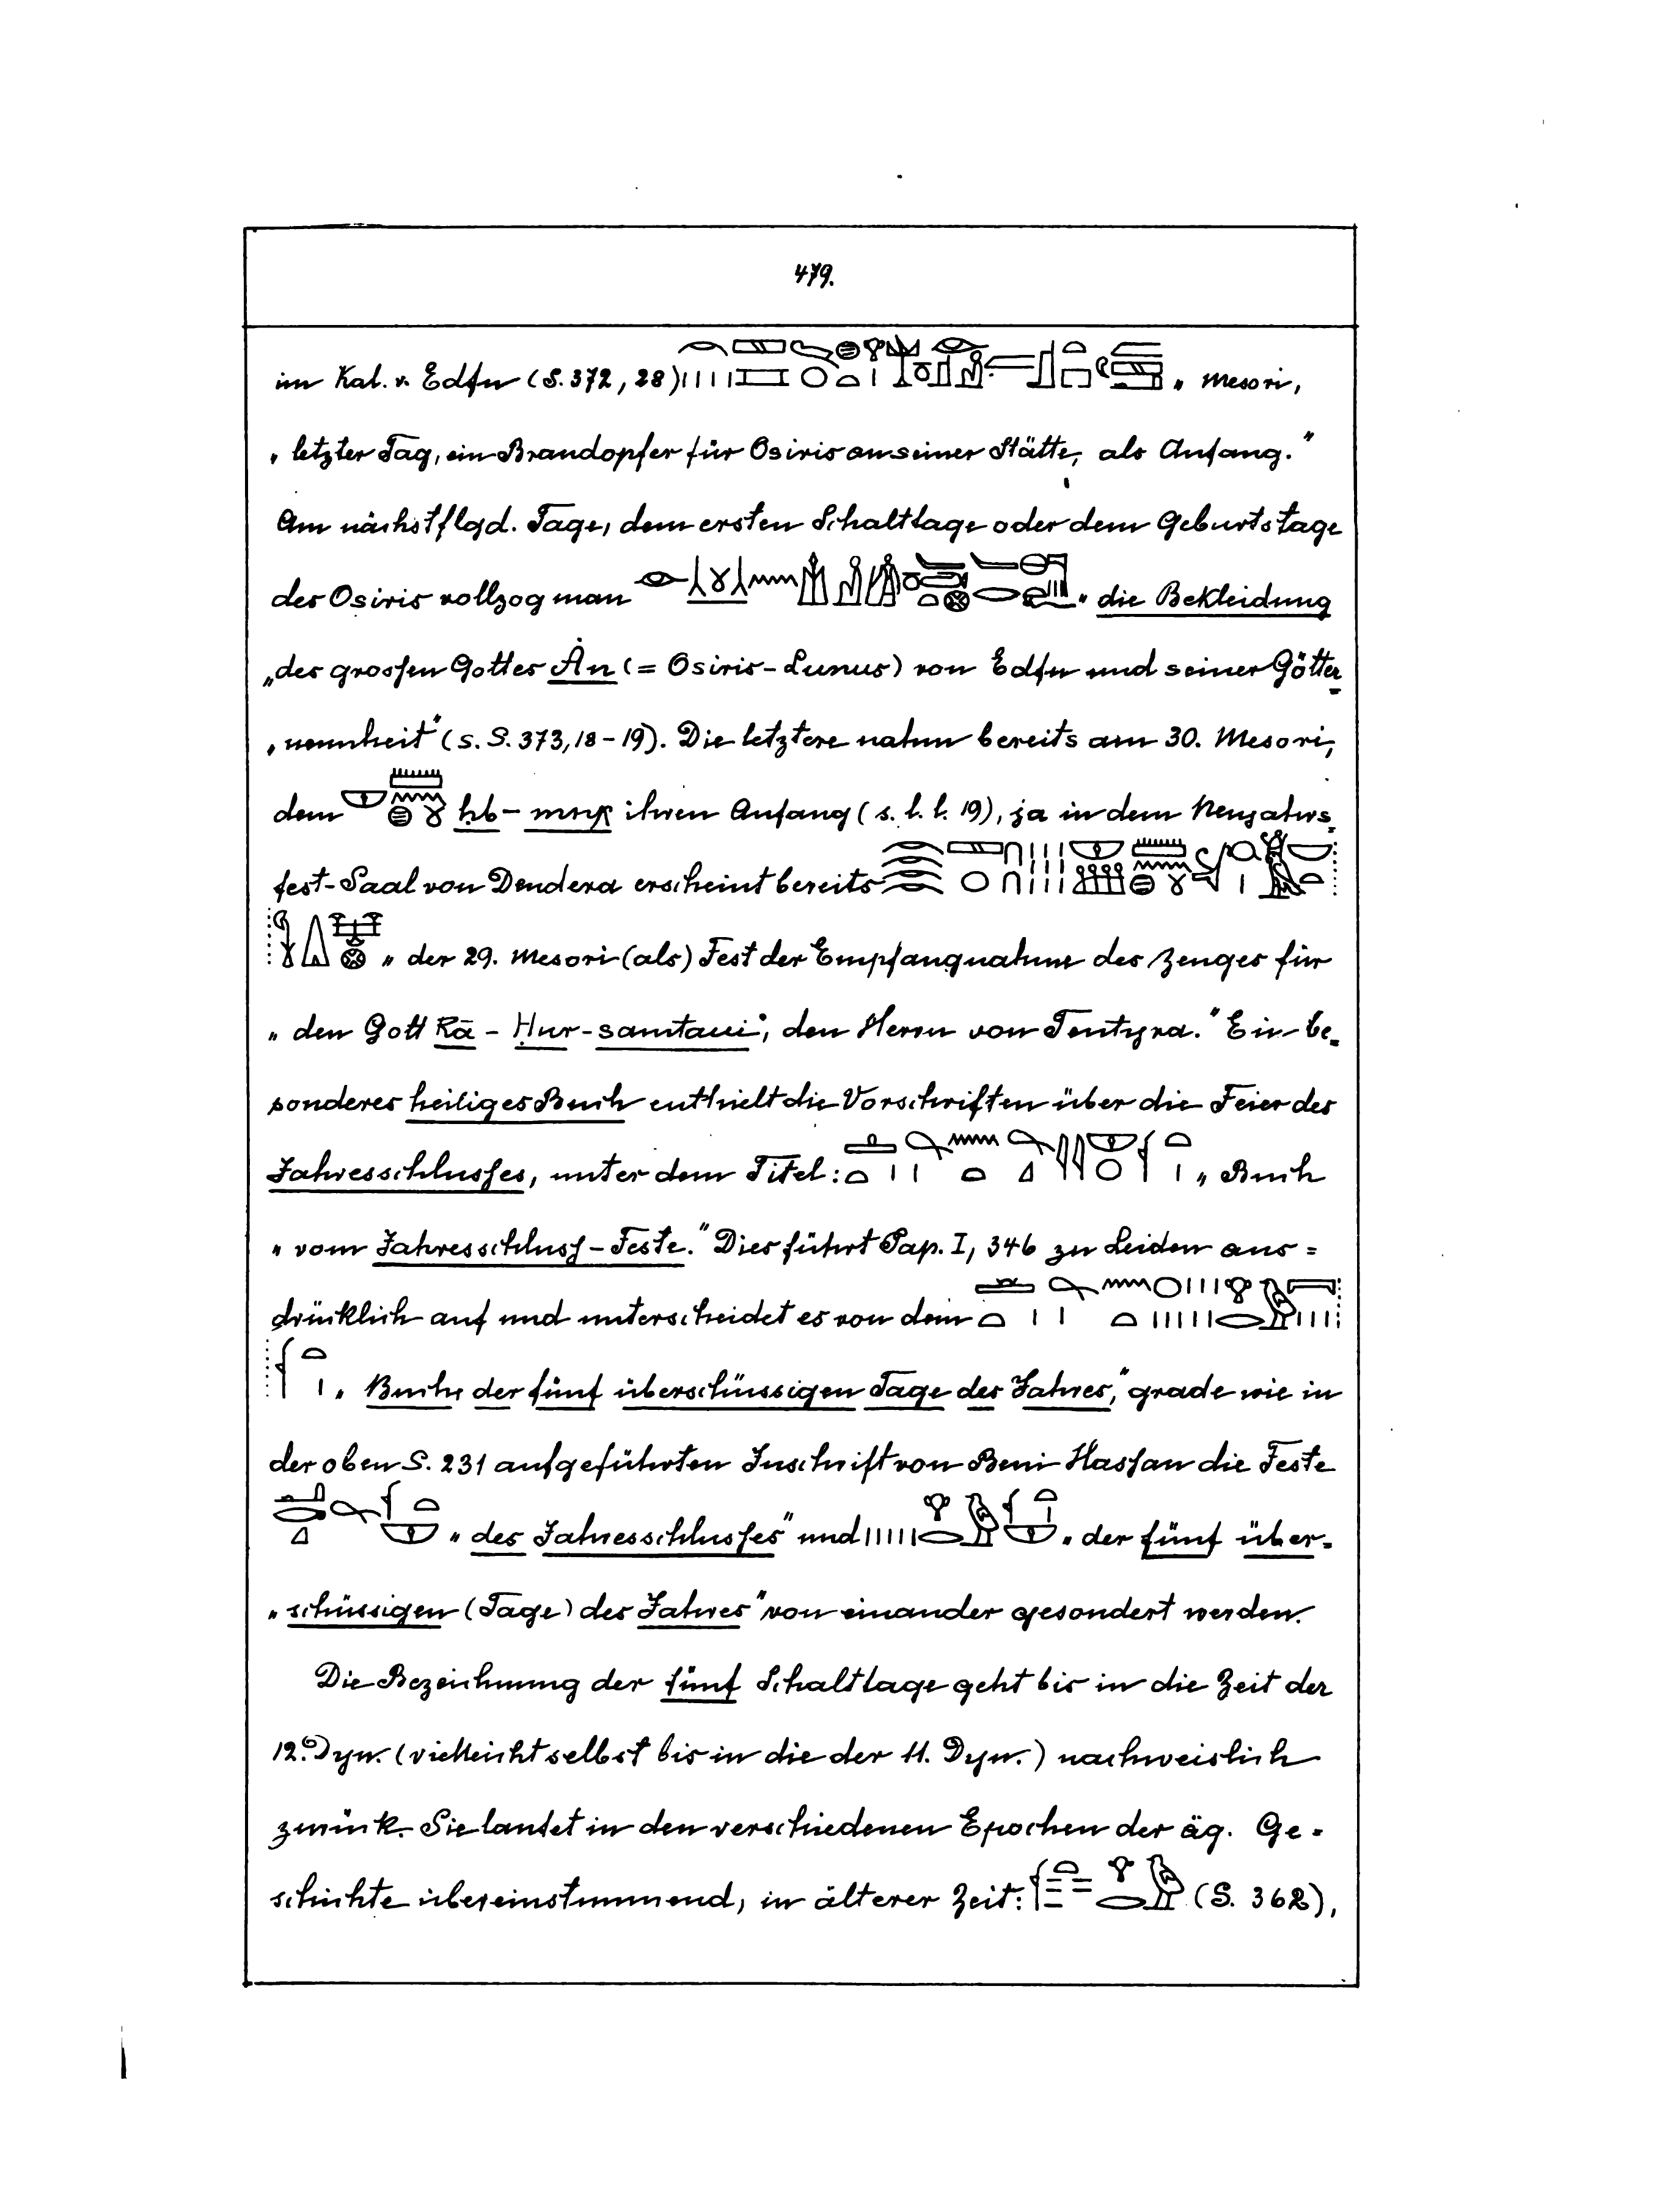 479.
im Kal. v. Edfu (S. 372, 28) „Mesori,
„letzter Tag, ein Brandopfer für Osiris an seiner Stätte, als Anfang."
Am nächstflgd. Tage, dem ersten Schalttage oder dem Geburtstage
des Osiris vollzog man „die Bekleidung
„des grossen Gottes Ȧn (= Osiris-Lunus) von Edfu und seiner Götter-
„neunheit" (s. S. 373, 18-19). Die letztere nahm bereits am 30. Mesori,
dem ḥb-mnẖ ihren Anfang (s. l. l. 19), ja in dem Neujahrs-
fest-Saal von Dendera erscheint bereits
„der 29. Mesori (als) Fest der Empfangnahme des Zeuges für
„den Gott Rā-Ḥur-samtaui, den Herrn von Tentyra." Ein be-
sonderes heiliges Buch enthielt die Vorschriften über die Feier des
Jahresschlusses, unter dem Titel: „Buch
„vom Jahresschluss-Feste." Dies führt Pap. I, 346 zu Leiden aus-
drücklich auf und unterscheidet es von dem
„Buche der fünf überschüssigen Tage des Jahres," grade wie in
der oben S. 231 aufgeführten Inschrift von Beni-Hassan die Feste
„des Jahresschlusses" und „der fünf über-
„schüssigen (Tage) des Jahres" von einander gesondert werden.
Die Bezeichnung der fünf Schalttage geht bis in die Zeit der
12. Dyn. (vielleicht selbst bis in die der 11. Dyn.) nachweislich
zurück. Sie lautet in den verschiedenen Epochen der äg. Ge-
schichte übereinstimmend, in älterer Zeit: (S. 362),